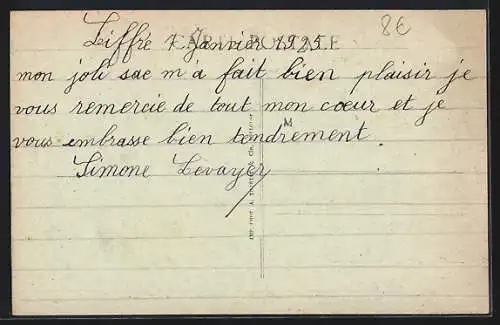 Liffré 1 Janvier 1925
CARTE POSTALE
8€
mon joli sac m'a fait bien plaisir je
vous remercie de tout mon cœur et je
vous embrasse bien tendrement.
M
Simone Levayer